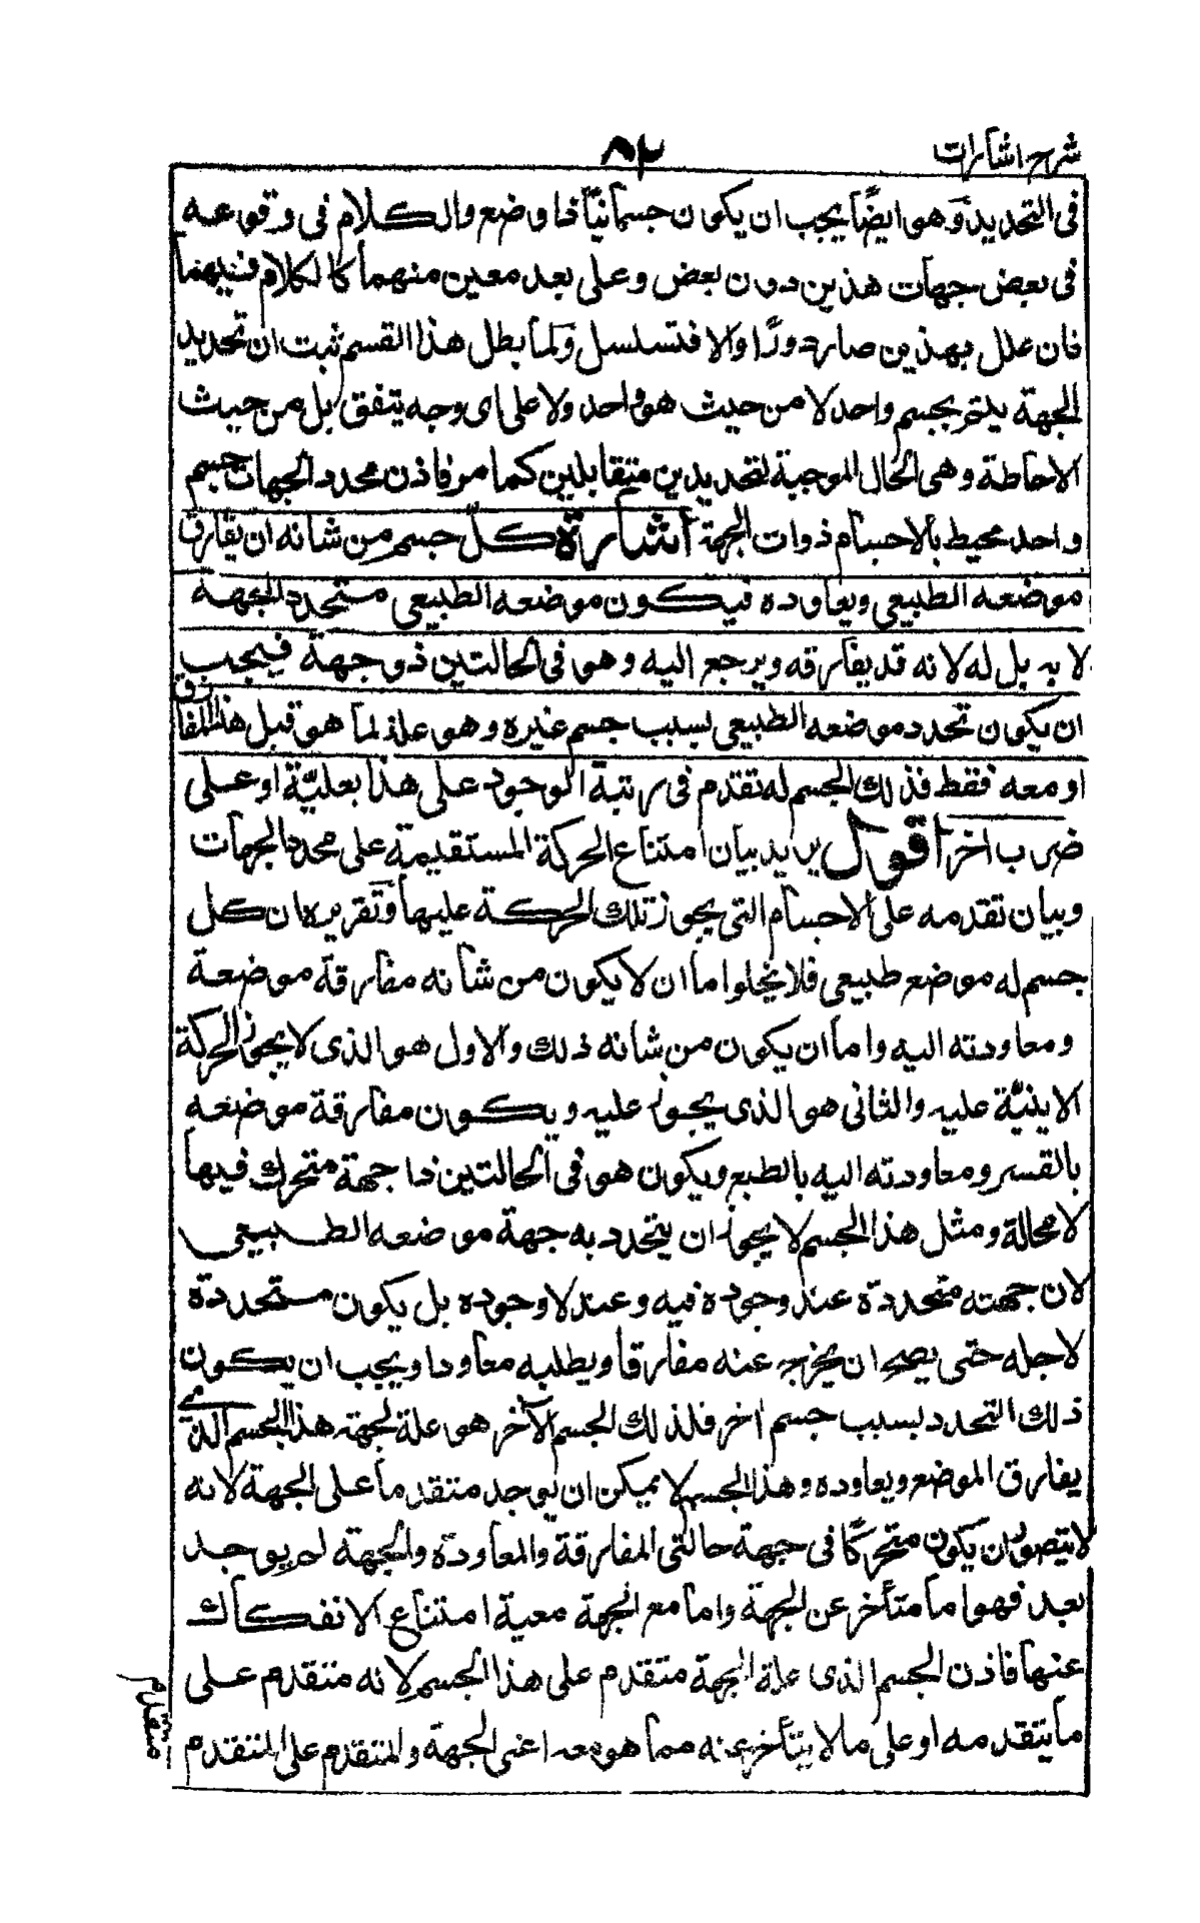 شرح اشارات
٨٢
فى التحديد وهو ايضًا يجب ان يكون جسمانيًا ذا وضع والكلام فى وقوعه
فى بعض جهات هذين دون بعض وعلى بعد معين منهما كالكلام فيهما
فان علل بهذين صار دورًا والا فتسلسل ولما بطل هذا القسم ثبت ان تحديد
الجهة يتم بجسم واحد لا من حيث هو واحد ولا على اى وجه يتفق بل من حيث
الاحاطة وهى الحال الموجبة لتحديدين متقابلين كما مر فاذن محدد الجهات جسم
واحد محيط بالاجسام ذوات الجهة اشارة كل جسم من شانه ان يفارق
موضعه الطبيعى ويعاوده فيكون موضعه الطبيعى متحدد الجهة
لا به بل له لانه قد يفارقه ويرجع اليه وهو فى الحالتين ذو جهة فيجب
ان يكون تحدد موضعه الطبيعى بسبب جسم غيره وهو علة لما هو قبل هذا المفارق
او معه فقط فذلك الجسم له تقدم فى رتبة الوجود على هذا بعليّة او على
ضرب اخر اقول يريد بيان امتناع الحركة المستقيمة على محدد الجهات
وبيان تقدمه على الاجسام التى يجوز تلك الحركة عليها وتقريره ان كل
جسم له موضع طبيعى فلا يخلوا ما ان لا يكون من شانه مفارقة موضعة
ومعاودته اليه واما ان يكون من شانه ذلك والاول هو الذى لا يجوز الحركة
الاينيّة عليه والثانى هو الذى يجوز عليه ويكون مفارقة موضعه
بالقسر ومعاودته اليه بالطبع ويكون هو فى الحالتين ذا جهة متحرك فيها
لا محالة ومثل هذا الجسم لا يجوز ان يتحدد به جهة موضعه الطبيعى
لان جهته متحددة عند وجوده فيه وعند لا وجوده بل يكون متحددة
لاجله حتى يصح ان يخرج عنه مفارقا ويطلبه معاودا ويجب ان يكون
ذلك التحدد بسبب جسم اخر فلذلك الجسم الآخر هو علة لجهة هذا الجسم الذى
يفارق الموضع ويعاوده وهذا الجسم لا يمكن ان يوجد متقدما على الجهة لانه
لا يتصور ان يكون متحركًا فى جهة حالتى المفارقة والمعاودة والجهة لم يوجد
بعد فهو اما متأخر عن الجهة واما مع الجهة معية امتناع الانفكاك
عنها فاذن الجسم الذى علة الجهة متقدم على هذا الجسم لانه متقدم على
ما يتقدمه او على ما لا يتأخر عنه مما هو معه اعنى الجهة والمتقدم على المتقدم
متقدم